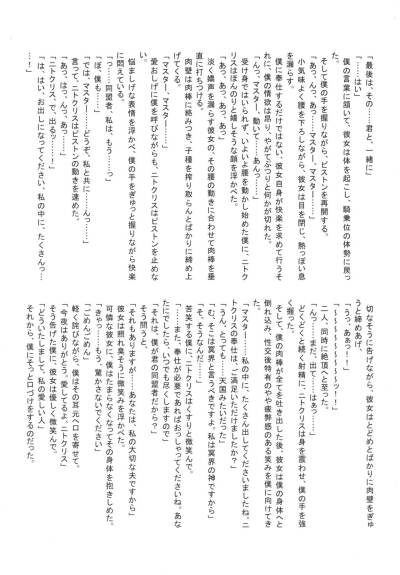 「最後は、その……君と、一緒に」
「……はい」
僕の言葉に頷いて、彼女は体を起こし、騎乗位の体勢に戻っ
た。
そして僕の手を握りながら、ピストンを再開する。
「あっ、んっ……マスター、マスター……」
小気味よく腰を下ろしながら、彼女は目を閉じ、熱っぽい息
を漏らす。
僕に奉仕するだけではない、彼女自身が快楽を求めて行うそ
れに、僕の情欲は昂り、やがてぷつりと何かが切れた。
「んっ、マスター、動いて……あーんっ……」
受け身ではいられず、いよいよ腰を動かし始めた僕に、ニトク
リスはほんのりと嬉しそうな顔を浮かべた。
「あっ、あっ、あっ、あっ」
淡く嬌声を漏らす彼女の、その腰の動きに合わせて肉棒を垂
直に打ちつける。
肉壁は肉棒に絡みつき、子種を搾り取らんとばかりに締め上
げてくる。
「マスター、マスター……」
愛おしげに僕を呼びながらも、ニトクリスはピストンを止めな
い。
悩ましげな表情を浮かべ、僕の手をぎゅっと握りながら快楽
に悶えている。
「っ……同盟者、私は、もう……っ」
「ぼ、僕も……」
「では、マスター……どうぞ、私と共に……んっ……」
言って、ニトクリスはピストンの動きを速めた。
「あっ、はっ、んっ、あっ……」
「ニトクリス、で、出るっ……！」
「は、はい、お出しになってください、私の中に、たくさんっ…
…！」
切なそうに告げながら、彼女はとどめとばかりに肉壁をぎゅ
うと締めあげ、
「うっ、あぁっ！！」
「～～～～～～ッ！！」
二人、同時に絶頂へと至った。
「んっ……まだ、出て……はぁっ……」
どくどくと続く射精に、ニトクリスは身を震わせ、僕の手を強
く握った。
そして、僕の肉棒が全てを吐き出した後、彼女は僕の身体へと
倒れ込み、性交後特有のやや疲弊感のある笑みを僕に向けてき
た。
「マスター……私の中に、たくさん出してくださいましたね。ニ
トクリスの奉仕は、ご満足いただけましたか？」
「うん、とっても……天国みたいだった」
「む、そこは冥界と言うべきですよ。私は冥界の神ですから」
「そ、そうなんだ……」
苦笑する僕に、ニトクリスはくすりと微笑んで、
「……また、奉仕が必要であればおっしゃってくださいね。あな
たにでしたら、いつでも尽くしますので」
「それは、僕が君の同盟者だから？」
そう問うと、
「それもありますが……あなたは、私の大切な夫ですから」
彼女は照れ臭そうに微笑みを浮かべた。
可憐な彼女に、僕はたまらなくなってその身体を抱きしめた。
「きゃっ……もう、驚かさないでください」
「ごめんごめん」
軽く詫びながら、僕はその耳元へ口を寄せて、
「今夜はありがとう。愛してるよ、ニトクリス」
そう告げた僕に、彼女は優しく微笑んで、
「どういたしまして、私の愛しい人」
それから、僕にそっと口づけをするのだった。